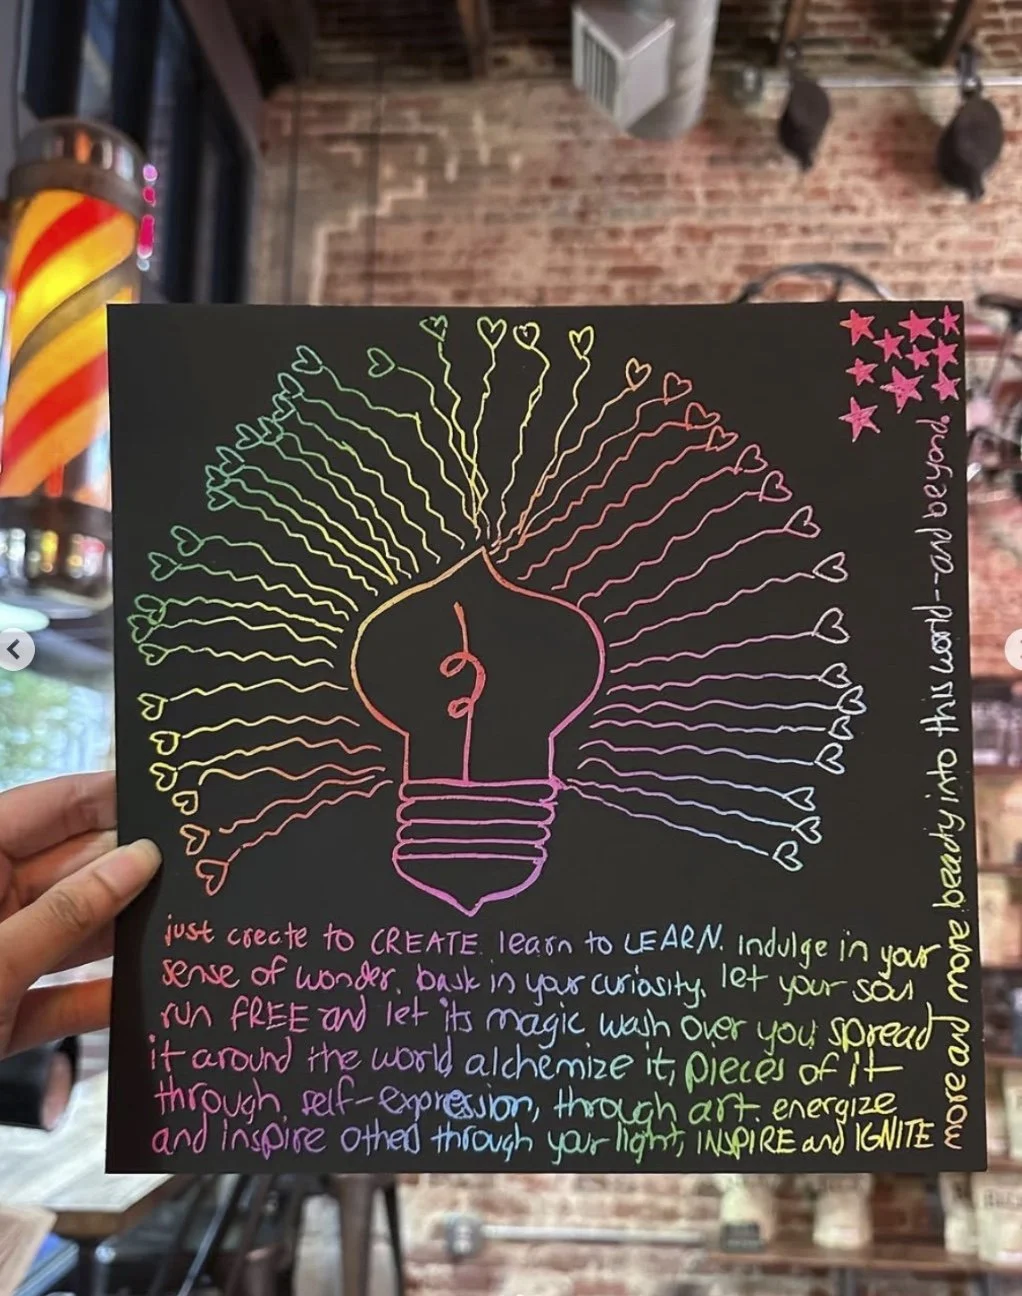 just create to CREATE. learn to LEARN. indulge in your
sense of wonder. bask in your curiosity, let your soul
run FREE and let its magic wash over you, spread
it around the world alchemize it, pieces of it
through, self-expression, through art. energize
and inspire others through your light, INSPIRE and IGNITE
more and more beauty into this world--and beyond.